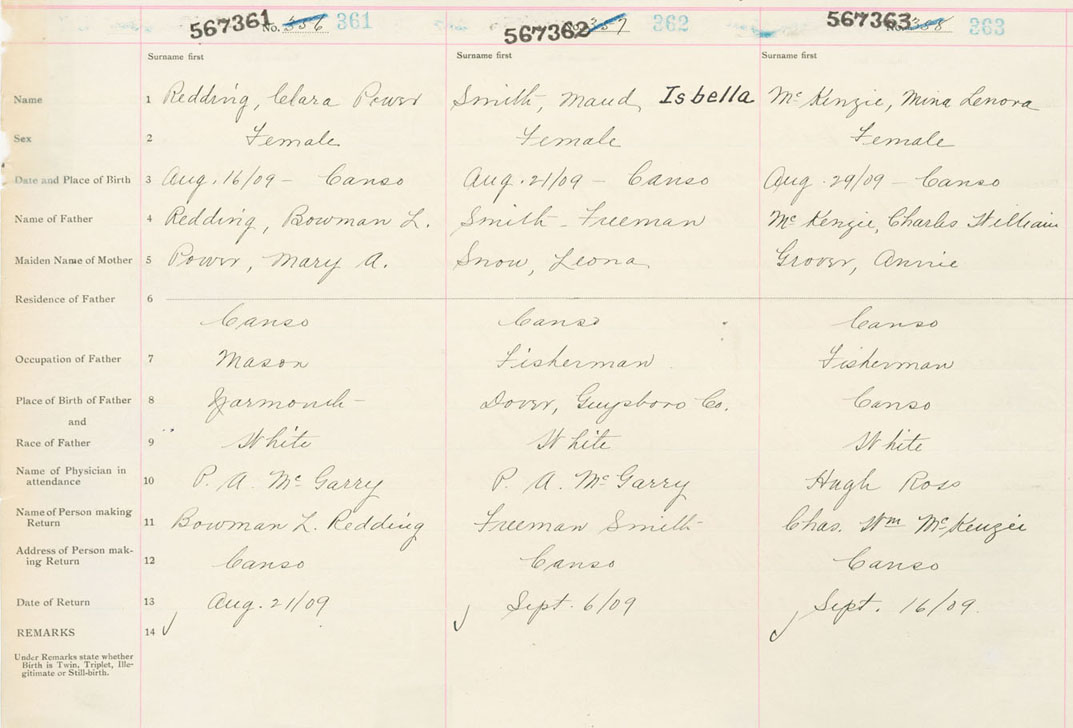 567361 No. 356 361 567362 357 362 567363 No. 358 363
Surname first Surname first Surname first
Name 1 Redding, Clara Power Smith, Maud Isbella Mc Kenzie, Mina Lenora
Sex 2 Female Female Female
Date and Place of Birth 3 Aug. 16/09 - Canso Aug. 21/09 - Canso Aug. 29/09 - Canso
Name of Father 4 Redding, Bowman L. Smith - Freeman Mc Kenzie, Charles William
Maiden Name of Mother 5 Power, Mary A. Snow, Leona Grover, Annie
Residence of Father 6
Canso Canso Canso
Occupation of Father 7 Mason Fisherman Fisherman
Place of Birth of Father 8 Yarmouth Dover, Guysboro Co. Canso
and
Race of Father 9 White White White
Name of Physician in
attendance 10 P. A. Mc Garry P. A. Mc Garry Hugh Ross
Name of Person making
Return 11 Bowman L. Redding Freeman Smith Chas. Wm Mc Kenzie
Address of Person mak-
ing Return 12 Canso Canso Canso
Date of Return 13 Aug. 21/09 Sept. 6/09 Sept. 16/09.
REMARKS 14
Under Remarks state whether
Birth is Twin, Triplet, Ille-
gitimate or Still-birth.